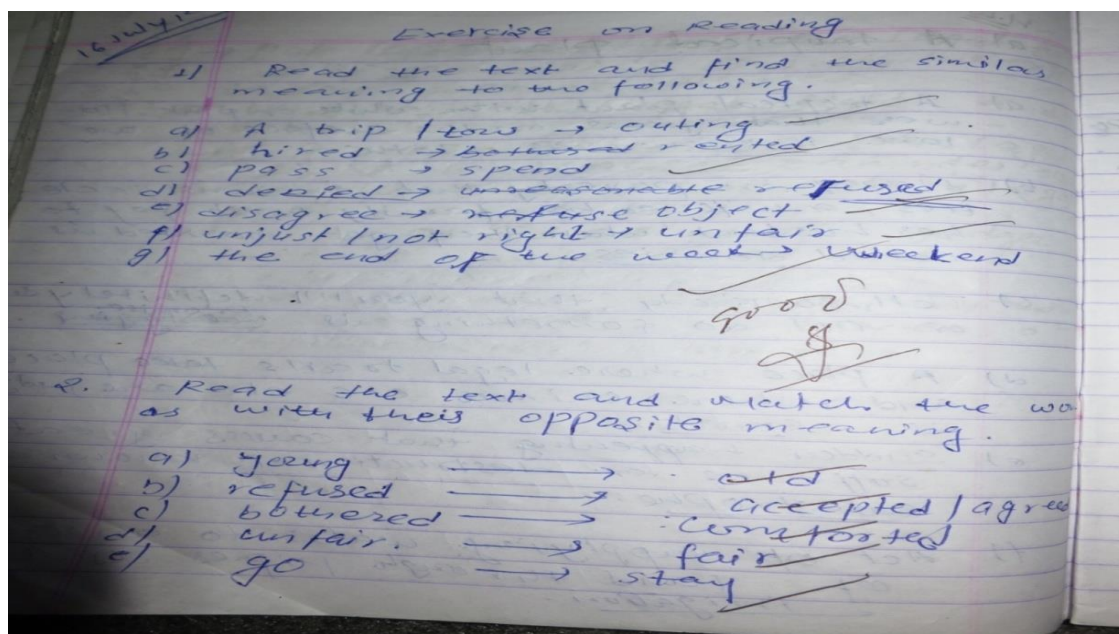 Exercise on Reading
1) Read the text and find the similar
meaning to the following.
a) A trip / tour → outing
b) hired → rented
c) pass → spend
d) denied → refused
e) disagree → object
f) unjust / not right → unfair
g) the end of the week → weekend
good
2. Read the text and match the wo
as with their opposite meaning.
a) young → old
b) refused → accepted / agree
c) bothered → comforted
d) unfair. → fair
e) go → stay